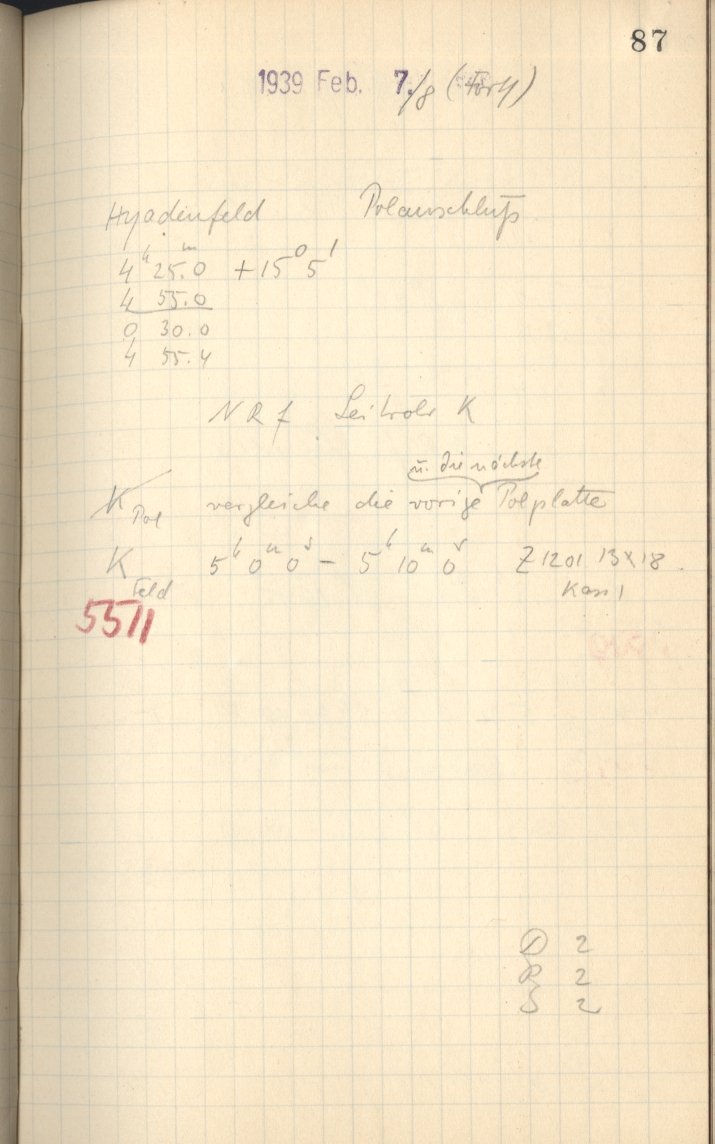 87
1939 Feb. 7./8 (Forts)
Hyadenfeld Polanschluß
4h 25m.0 +15° 5'
4 55.0
0 30.0
4 55.4
NRf Leitrohr K
u. die nächste
K Pol vergleiche die vorige Polplatte
K Feld 5h 0m 0s – 5h 10m 0s Z 1201 13x18
Kass 1
5511
D 2
R 2
S 2